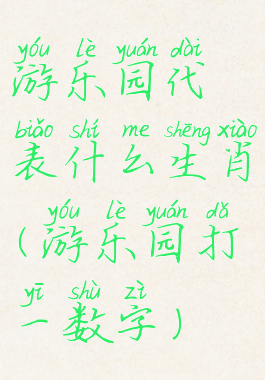 yóu lè yuán dài
游乐园代
biǎo shí me shēng xiào
表什么生肖
yóu lè yuán dǎ
(游乐园打
yī shù zì
一数字)